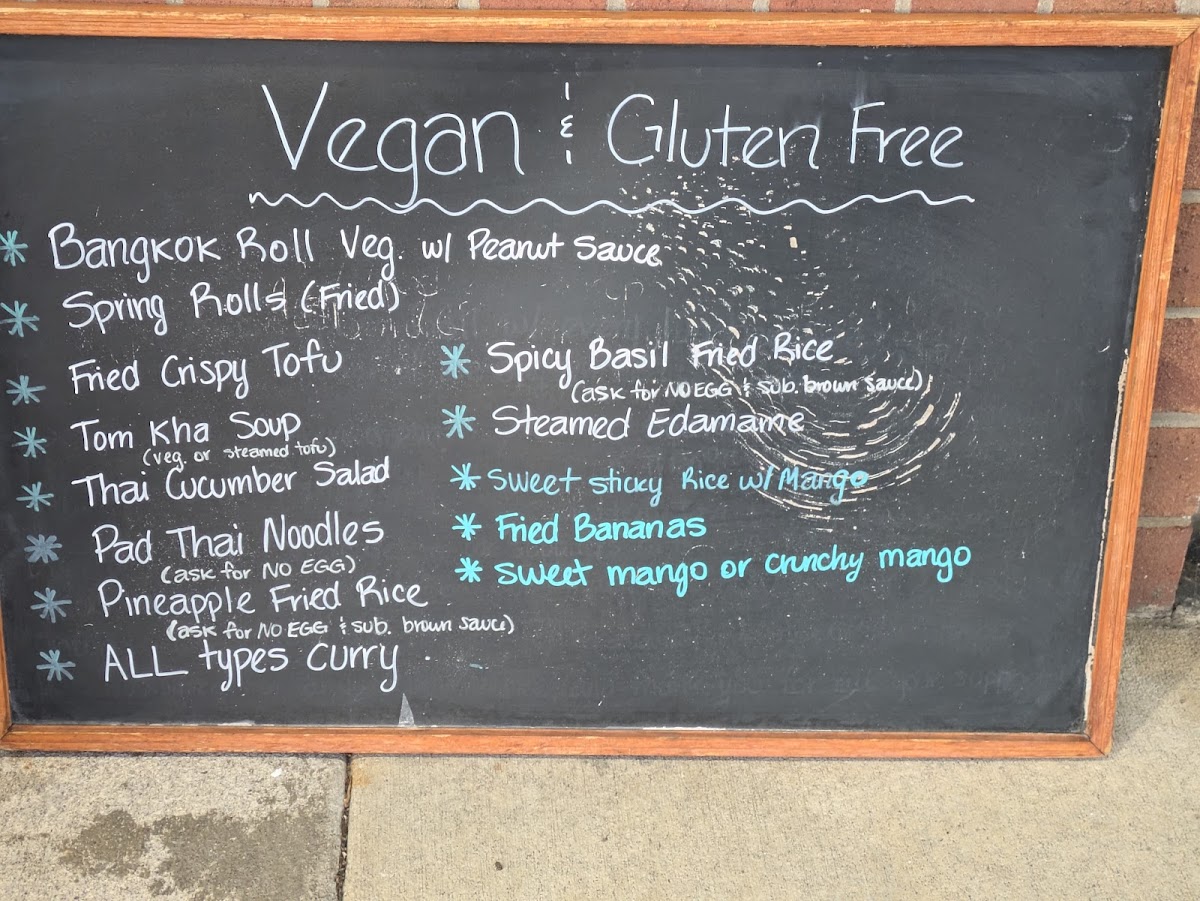 Vegan & Gluten Free
* Bangkok Roll Veg. w/ Peanut Sauce
* Spring Rolls (Fried)
* Fried Crispy Tofu
* Tom Kha Soup
(veg. or steamed tofu)
* Thai Cucumber Salad
* Pad Thai Noodles
(ask for NO EGG)
* Pineapple Fried Rice
(ask for NO EGG & sub. brown sauce)
* ALL types curry
* Spicy Basil Fried Rice
(ask for NO EGG & sub. brown sauce)
* Steamed Edamame
* Sweet sticky Rice w/ Mango
* Fried Bananas
* sweet mango or crunchy mango